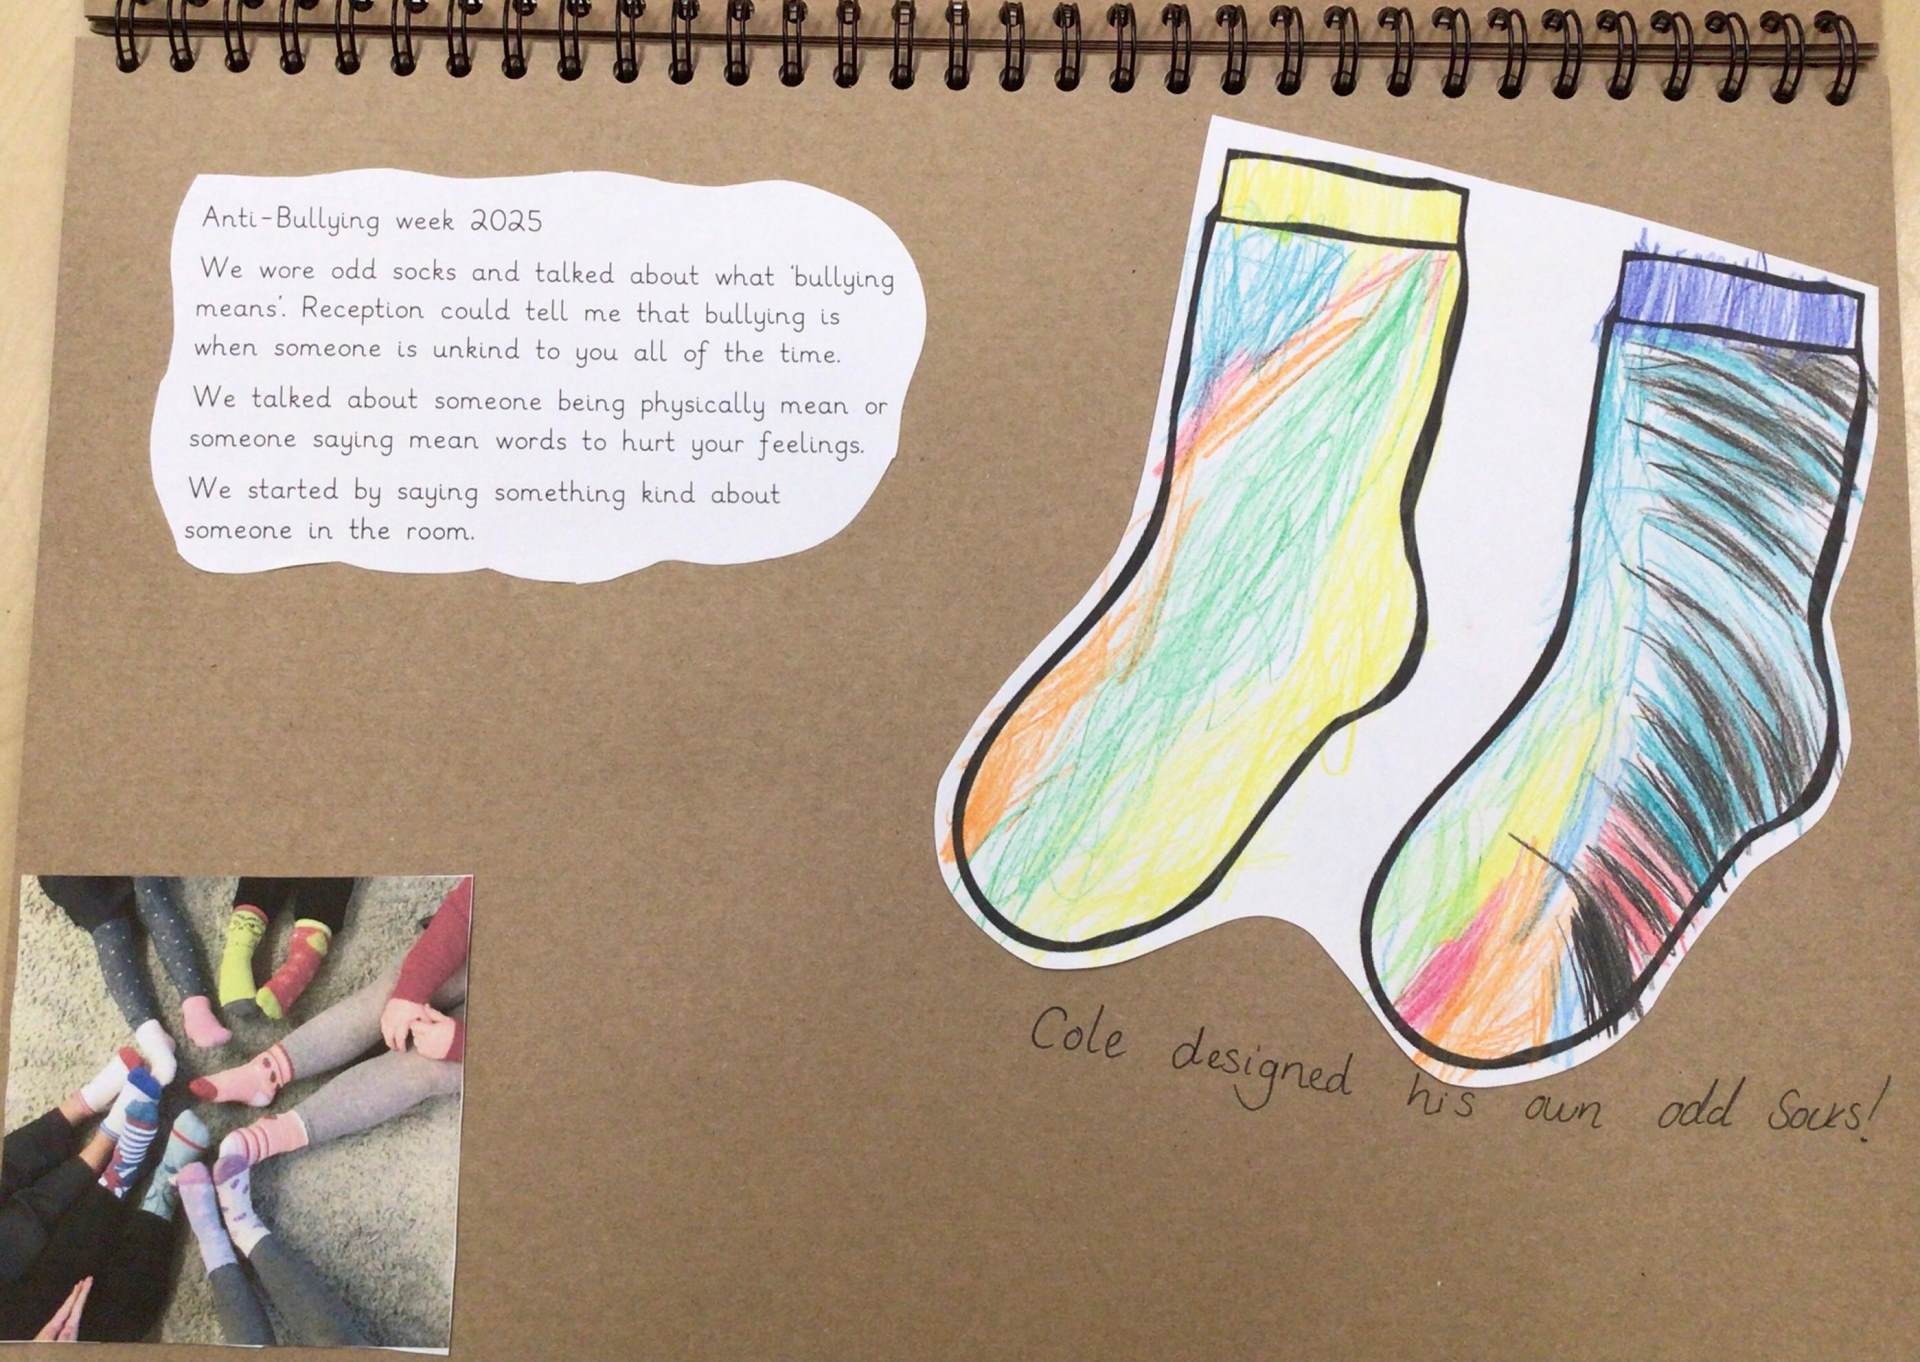 Anti-Bullying week 2025
We wore odd socks and talked about what 'bullying
means'. Reception could tell me that bullying is
when someone is unkind to you all of the time.
We talked about someone being physically mean or
someone saying mean words to hurt your feelings.
We started by saying something kind about
someone in the room.
Cole designed his own odd Socks!